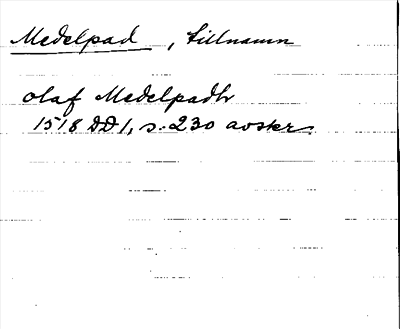 Medelpad, tillnamn
olaf Medelpadh
1518 DD1, s. 230 avskr.